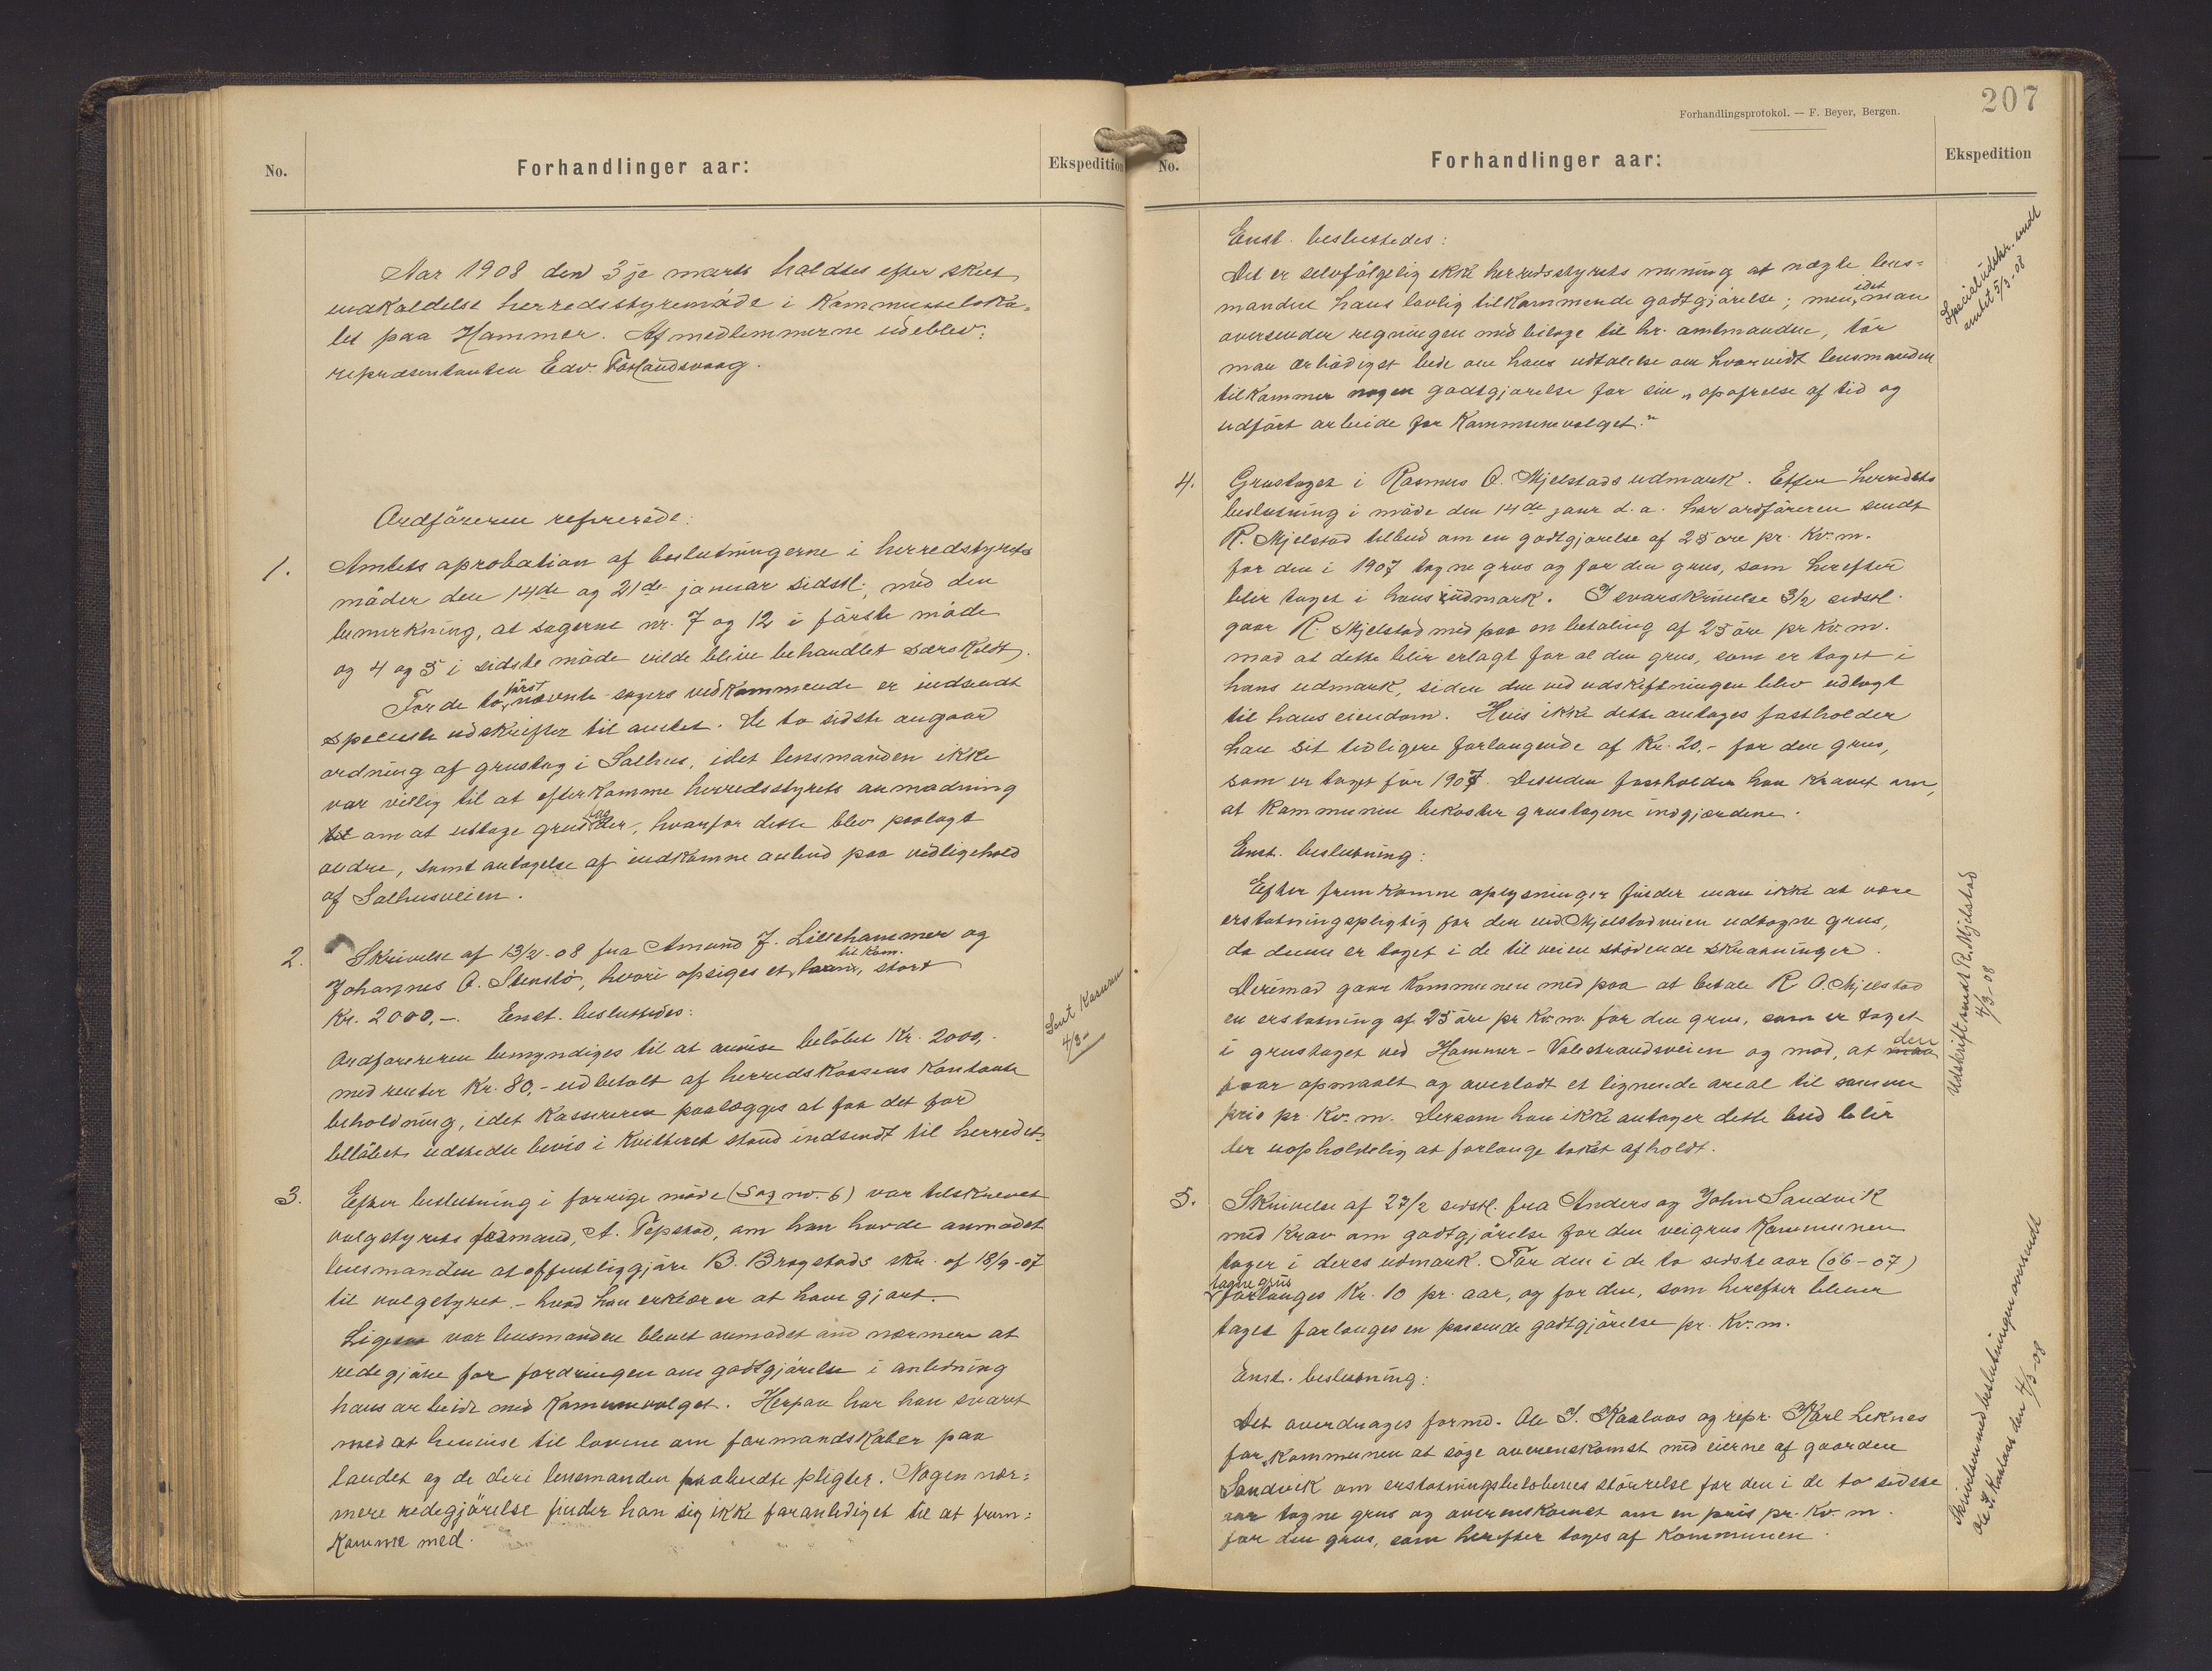 No.
Forhandlinger aar:
Ekspedition
Aar 1908 den 3je marts holdtes efter skeet
indkaldelse herredsstyremøde i Kommuneloka-
let paa Hammer. Af medlemmerne udeblev:
repræsentanten Edv. Forlandsvaag.
Ordføreren refererede:
1.
Amtets aprobation af beslutningerne i herredstyrets
møder den 14de og 21de januar sidstl, med den
bemærkning, at sagerne nr. 7 og 12 i første møde
og 4 og 5 i sidste møde vilde blive behandlet særskildt.
For de to først nævnte sagers vedkommende er indsendt
specielle udskrifter til amtet. De to sidste angaar
ordning af grustag i Salhus, idet lensmanden ikke
var villig til at efterkomme herredsstyrets anmodning
om at udtage grus der, hvorfor dette blev paalagt
andre, samt antagelse af indkomne anbud paa vedligehold
af Salhusveien.
2.
Skrivelse af 13/2-08 fra Amund J. Lillehammer og
Johannes O. Stenslø, hvori opsiges et til kom. laan, stort
Kr. 2000,-. Enst. besluttedes:
Ordføreren bemyndiges til at anvise beløbet Kr. 2000,-
med renter Kr. 80,- udbetalt af herredskassens kontante
beholdning, idet kassereren paalægges at faa det for
beløbet udstedte bevis i kvitteret stand indsendt til herredet.
Sent Kasseren
4/3-
3.
Efter beslutning i forrige møde (Sag nr. 6) var tilskrevet
valgstyrets formand, A. Tepstad, om han havde anmodet
lensmanden at offentliggjøre B. Brogstads skr. af 18/9-07
til valgstyret. - hvad han erklærer at have gjort.
Ligesaa var lensmanden blevet anmodet om nærmere at
redegjøre for fordringen om godtgjørelse i anledning
hans arbeide med Kommunevalget. Herpaa har han svaret
med at henvise til lovene om formandskaber paa
landet og de deri lensmanden paabudte pligter. Nogen nær-
mere redegjørelse finder han sig ikke foranlediget til at frem-
komme med.
207
Forhandlingsprotokol. — F. Beyer, Bergen.
No.
Forhandlinger aar:
Ekspedition
Enst. besluttedes:
Det er selvfølgelig ikke herredsstyrets mening at nægte lens-
manden hans lovlig tilkommende godtgjørelse; men, idet man
oversender regningen med bilage til hr. amtmanden, tør
man ærbødigst bede om hans udtalelse om hvorvidt lensmanden
tilkommer nogen godtgjørelse for sin „opofrelse af tid og
udført arbeide for Kommunevalget."
Specialudskr. sendt
amtet 5/3-08
4.
Grustaget i Rasmus O. Mjelstads udmark. Efter herredets
beslutning i møde den 14de janr d. a. har ordføreren sendt
R. Mjelstad tilbud om en godtgjørelse af 25 øre pr. Kv. m.
for den i 1907 tagne grus og for den grus, som herefter
blir taget i hans udmark. I svarskrivelse 3/2 sidstl.
gaar R. Mjelstad med paa en betaling af 25 øre pr Kv. m.
mod at dette blir erlagt for al den grus, som er taget i
hans udmark, siden den ved udskiftningen blev udlagt
til hans eiendom. Hvis ikke dette antages fastholder
han sit tidligere forlangende af Kr. 20,- for den grus,
som er taget før 1907. Desuden fastholder han kravet om,
at Kommunen bekoster grustagene indgjærdene.
Enst. beslutning:
Efter fremkomne oplysninger finder man ikke at være
erstatningspligtig for den ved Mjelstadveien udtagne grus,
da denne er taget i de til veien stødende skraaninger.
Derimod gaar Kommunen med paa at betale R. O. Mjelstad
en erstatning af 25 øre pr Kv. m. for den grus, som er taget
i grustaget ved Hammer-Valestrandsveien og mod, at den
faar opmaalt og overladt et lignende areal til samme
pris pr. Kv. m. Dersom han ikke antager dette bud blir
der uopholdelig at forlange takst afholdt.
Udskrift sendt R. Mjelstad
4/3-08
5.
Skrivelse af 27/2 sidstl. fra Anders og John Sandvik
med krav om godtgjørelse for den veigrus Kommunen
tager i deres udmark. For den i de to sidste aar (06-07)
tagne grus forlanges Kr. 10 pr. aar, og for den, som herefter bliver
taget forlanges en passende godtgjørelse pr. Kv. m.
Enst. beslutning:
Det overdrages formd. Ole I. Kaalaas og repr. Karl Leknes
for Kommunen at søge overenskomst med eierne af gaarden
Sandvik om erstatningsbeløbenes størrelse for den i de to sidste
aar tagne grus og overenskomst om en pris pr. Kv. m.
for den grus, som herefter tages af Kommunen.
Skrivelsen med beslutningen oversendt
Ole I. Kaalaas den 4/3-08